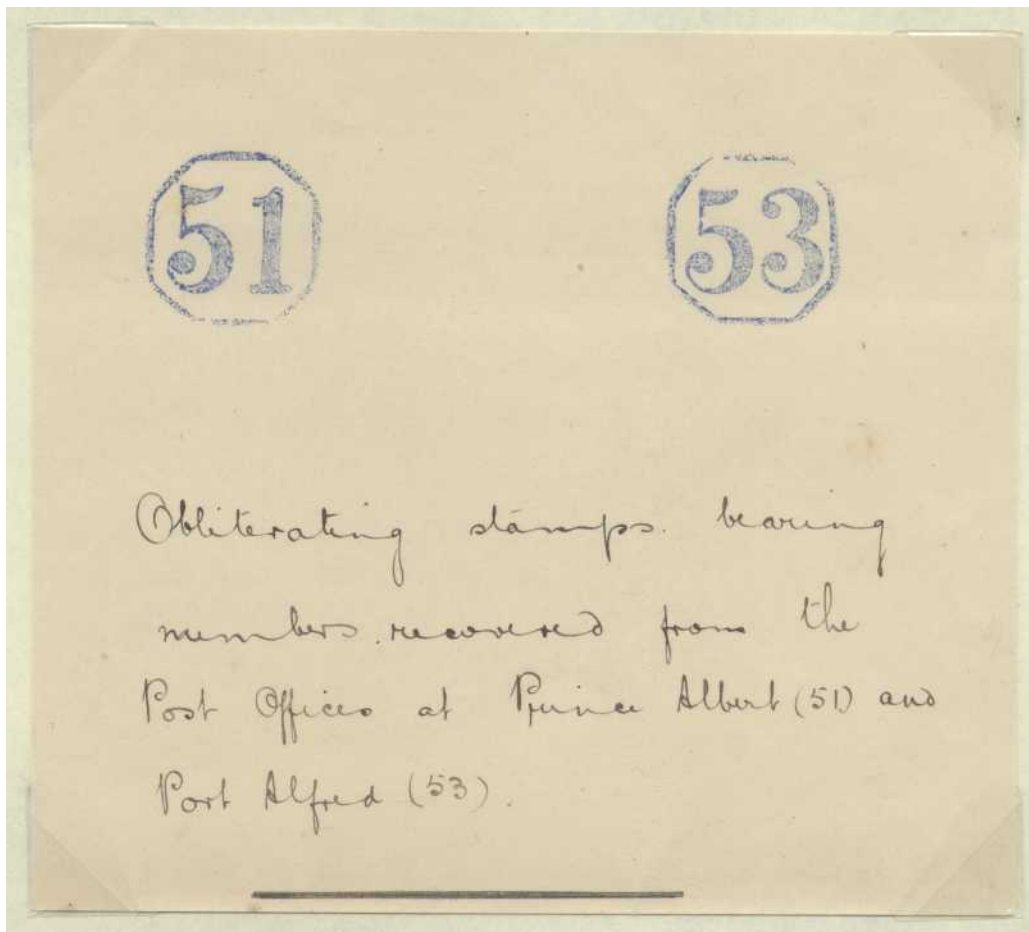 51 53
Obliterating stamps. bearing
numbers. recovered from the
Post Offices at Prince Albert (51) and
Port Alfred (53).